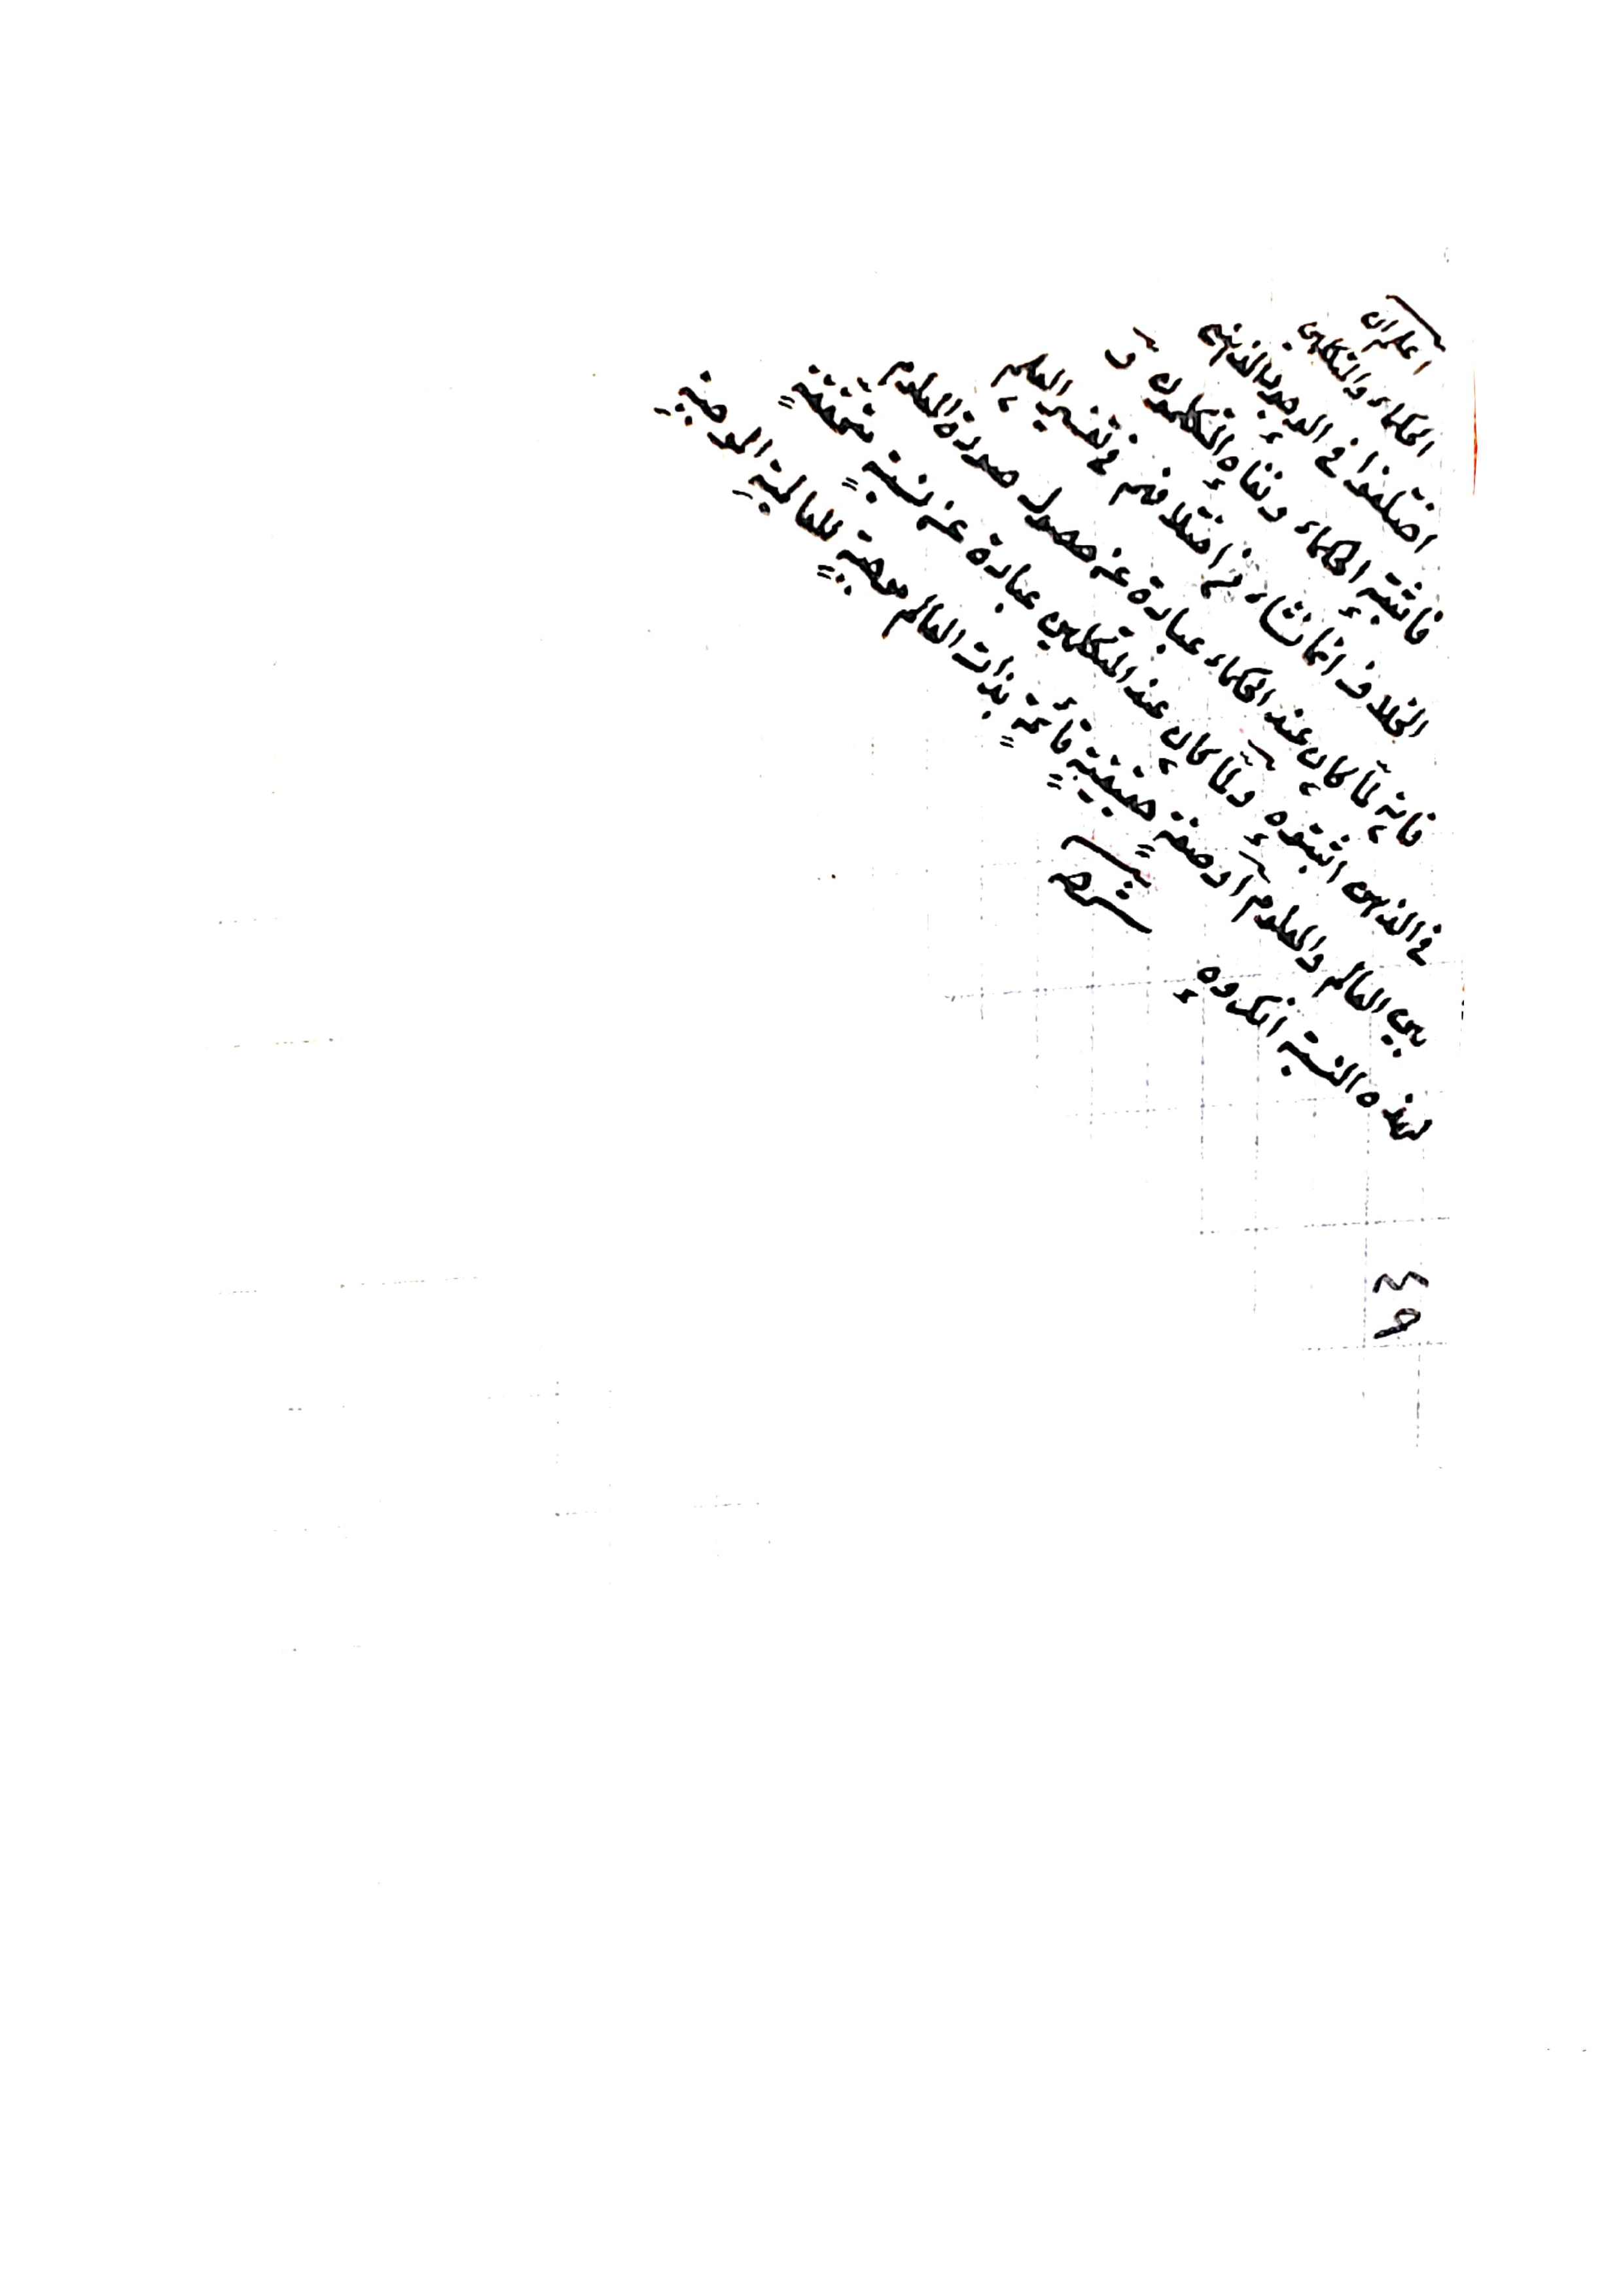 اعلم ان
الحكماء والمتكلمين
اختلفوا في الوجود الذهني
فاثبته الحكماء ونفاه المتكلمون و
الخلاف الخلاف ناش من اختلافهم في تفسير العلم
فانه لما كان عند الحكماء عبارة عن حصول صورة المعلوم
في الذهن اثبتوه ولما كان عند المتكلمين عبارة عن نسبة متحققة
بين العالم والمعلوم او صفة حقيقية قائمة بذات العالم موجبة للعالمية الموجبة
لهذه النسبة انكروه
شرح
٤٩